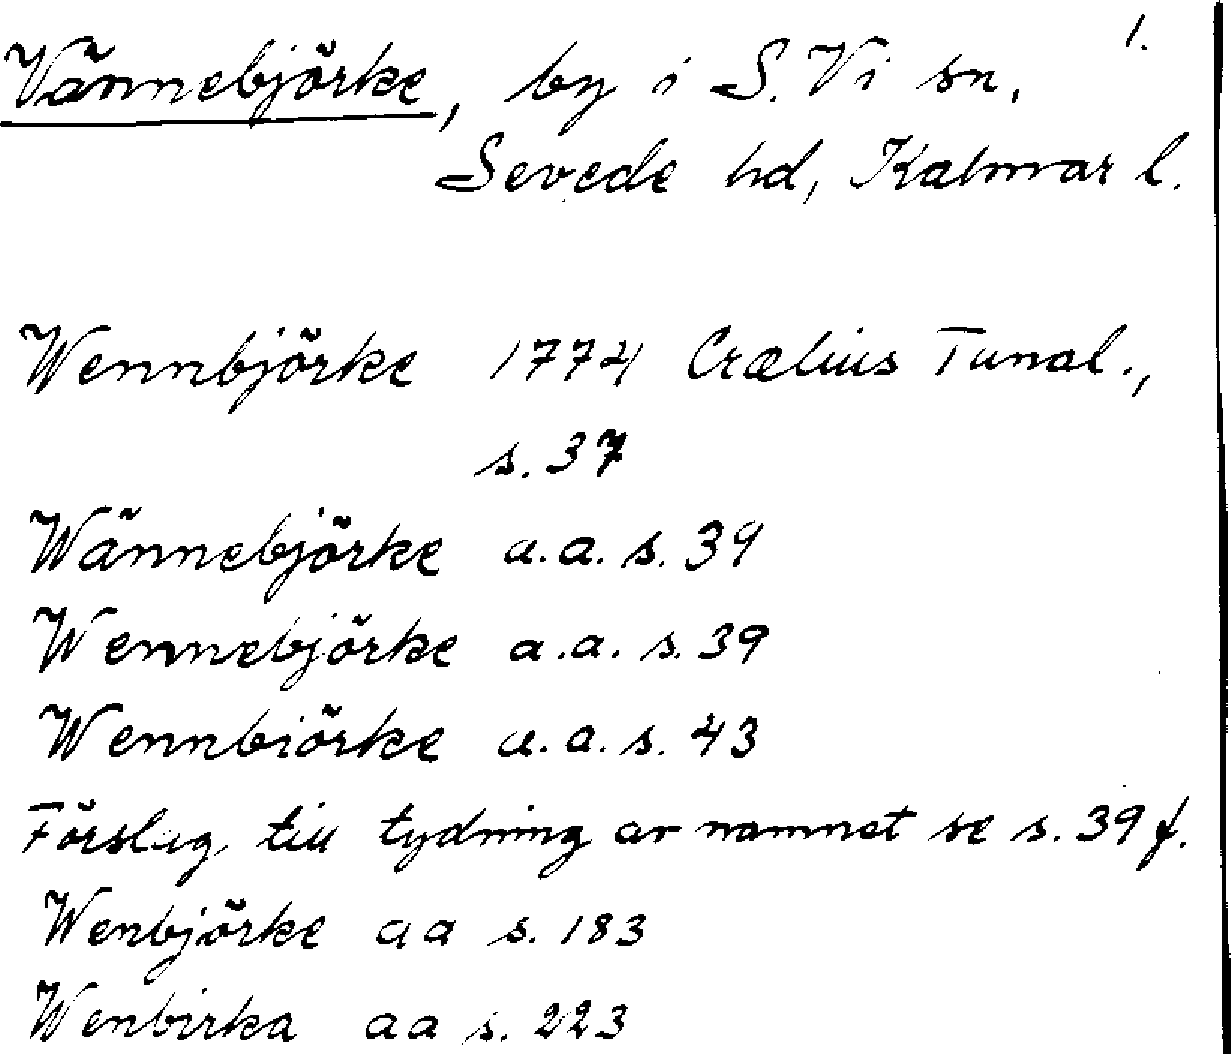 1.
Vännebjörke, by i S. Vi sn,
Sevede hd, Kalmar l.
Wennbjörke 1774 Crælius Tunal.,
s. 37
Wännebjörke a.a. s. 39
Wennebjörke a.a. s. 39
Wennbiörke a.a. s. 43
Förslag till tydning av namnet se s. 39 f.
Wenbjörke aa s. 183
Wenbirka aa s. 223